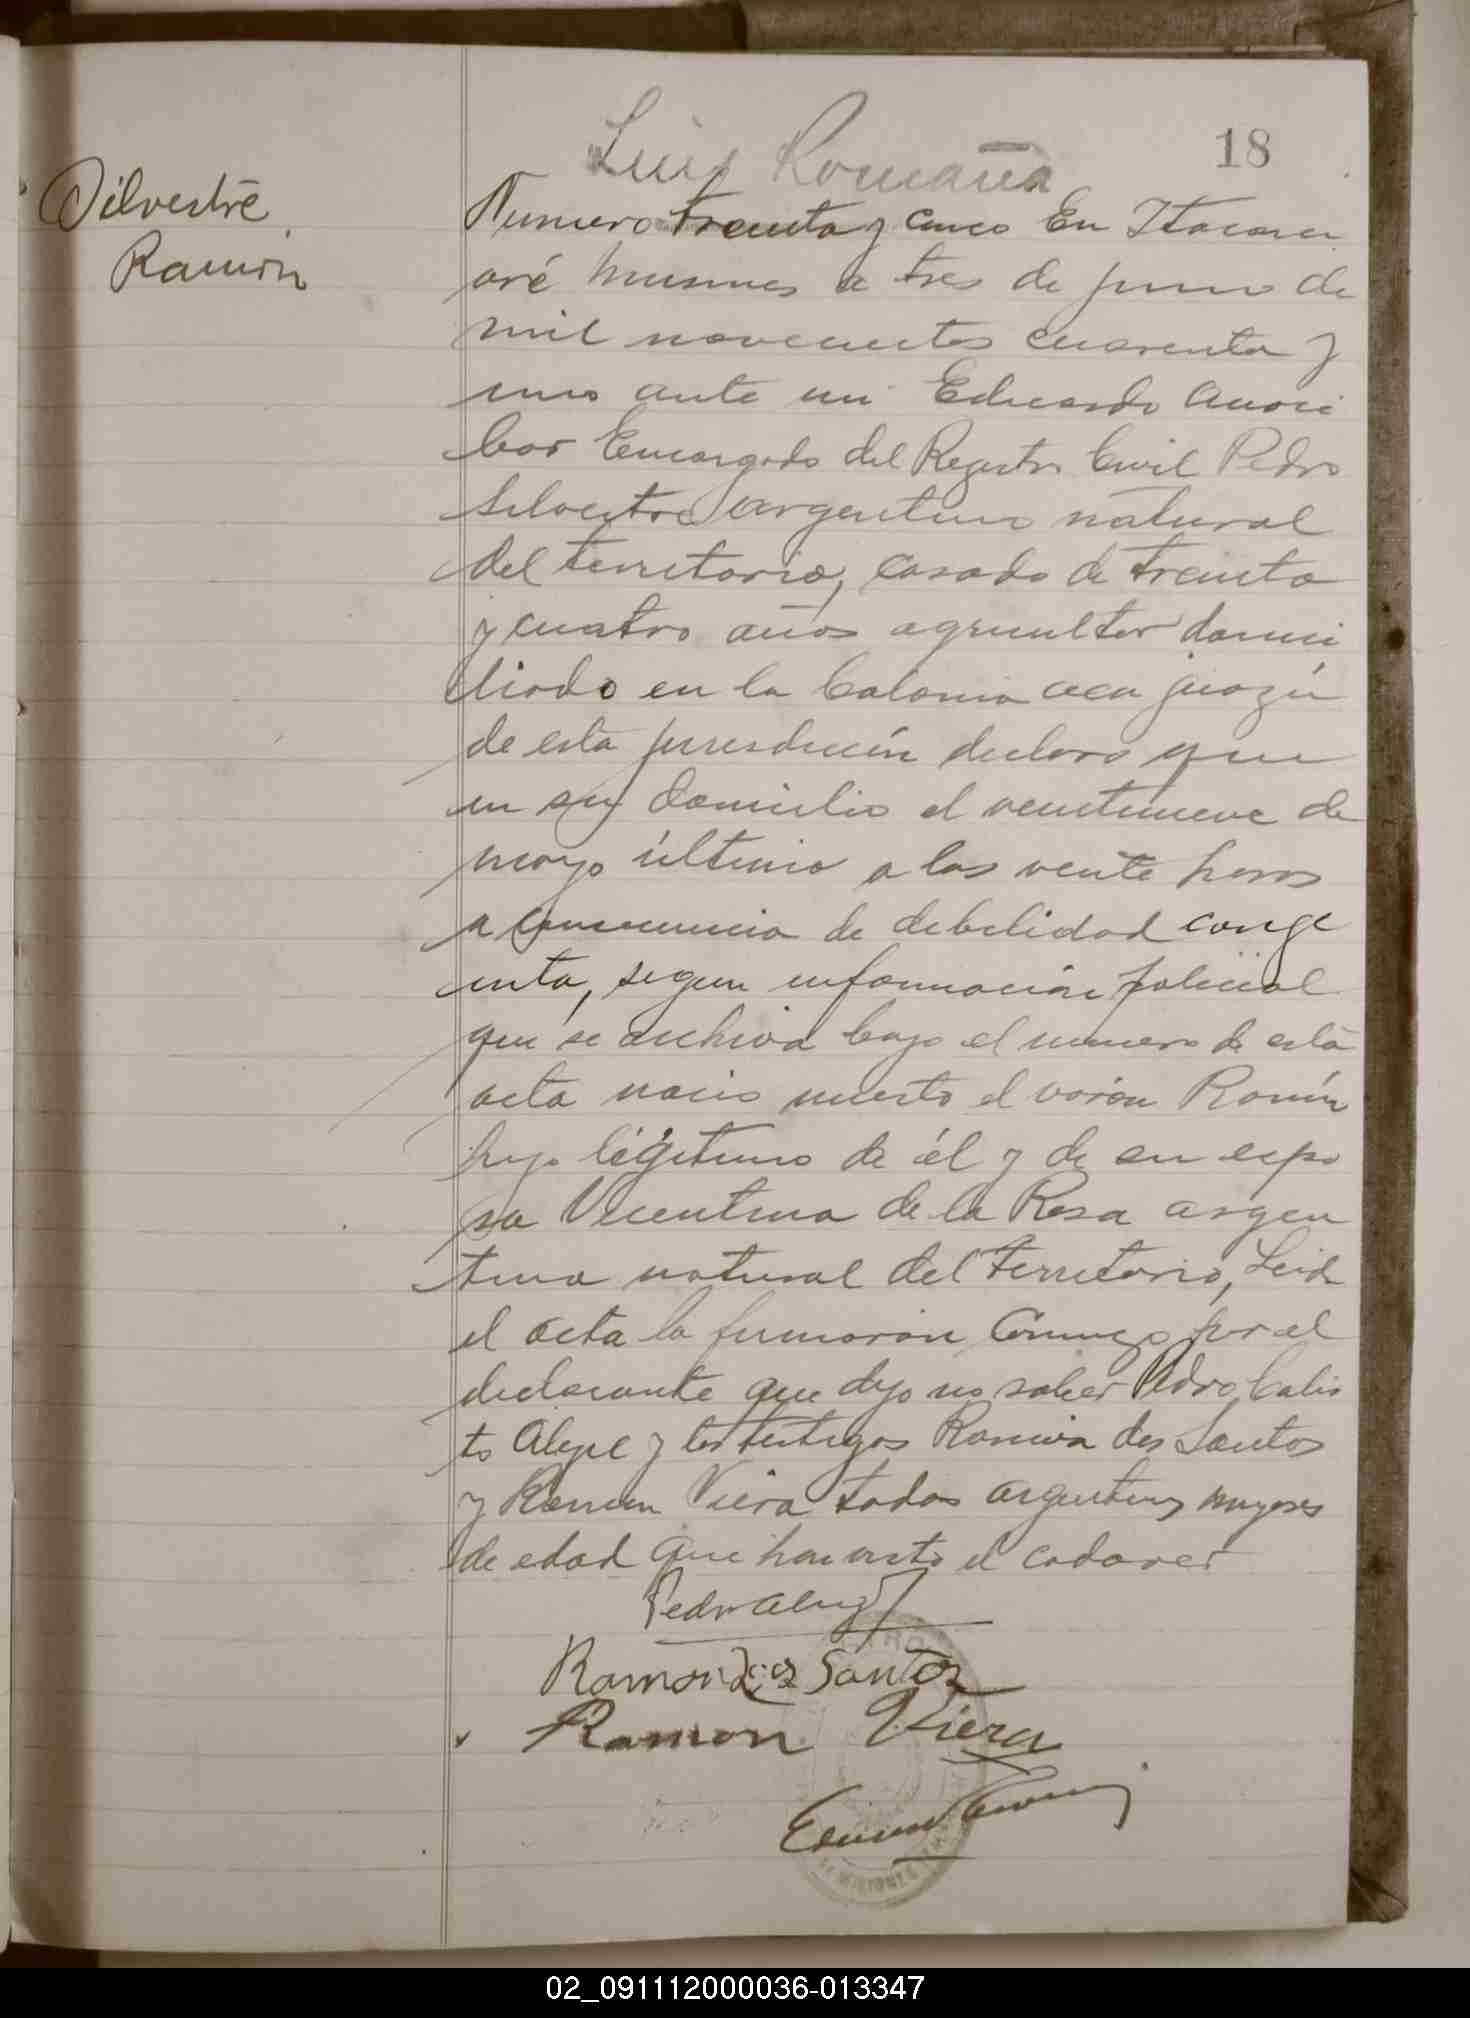 Luis Romaña
18
Silvestre
Ramón
Numero treinta y cinco En Itacaru
aré Misiones a tres de junio de
mil novecientos cuarenta y
uno ante mi Eduardo
bar Encargado del Registro Civil Pedro
Silvestre argentino natural
del territorio, casado de treinta
y cuatro años agricultor domici
liado en la Colonia guazú
de esta jurisdicción declaro que
en su domicilio el veintinueve de
mayo último a las veinte horas
a consecuencia de debilidad conge
nita, segun información policial
que se archiva bajo el numero de esta
acta nacio muerto el varón Ramón
hijo légitimo de él y de su espo
sa Vicentina de la Rosa argen
tina natural del territorio, Leid
el acta la firmaron conmigo por el
declarante que dijo no saber Pedro Calis
to Alegre y los testigos Ramón dos Santos
y Ramon Viera todos argentinos mayores
de edad que han visto el cadaver
Pedro
Ramon dos Santos
Ramon Viera
MISIONES
02_091112000036-013347